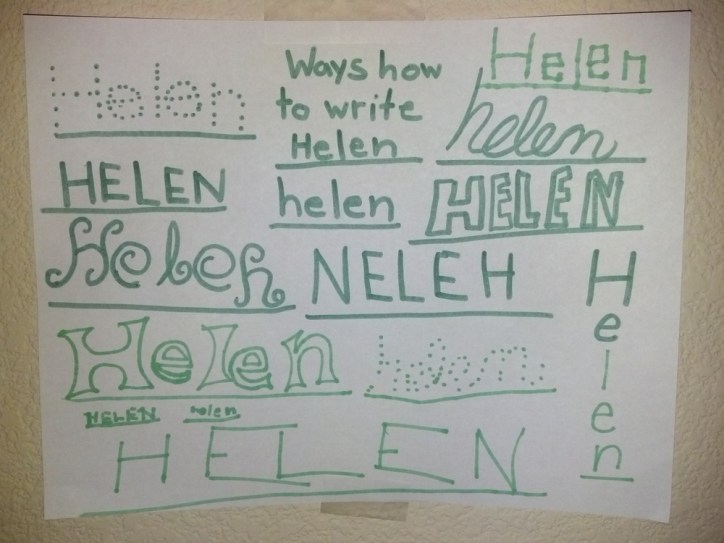 Helen
Ways how
to write
Helen
Helen
helen
HELEN
helen
HELEN
Helen
NELEH
Helen
Helen
helen
HELEN
helen
HELEN